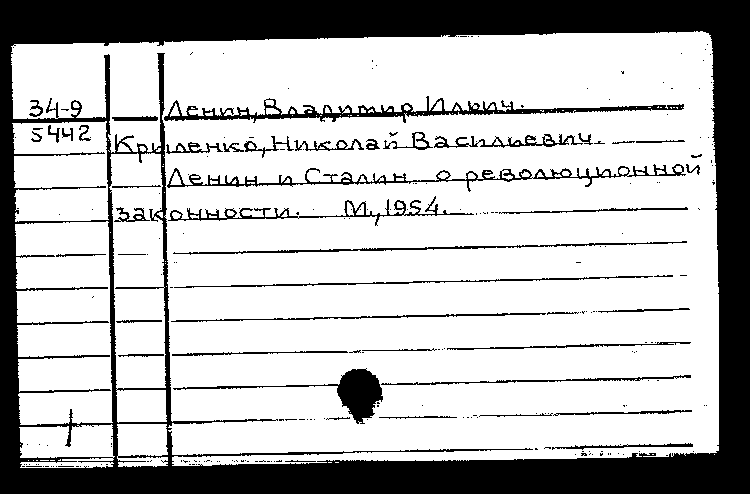 34-9 Ленин, Владимир Ильич.
5442 Крыленко, Николай Васильевич.
Ленин и Сталин о революционной
законности. М., 1954.